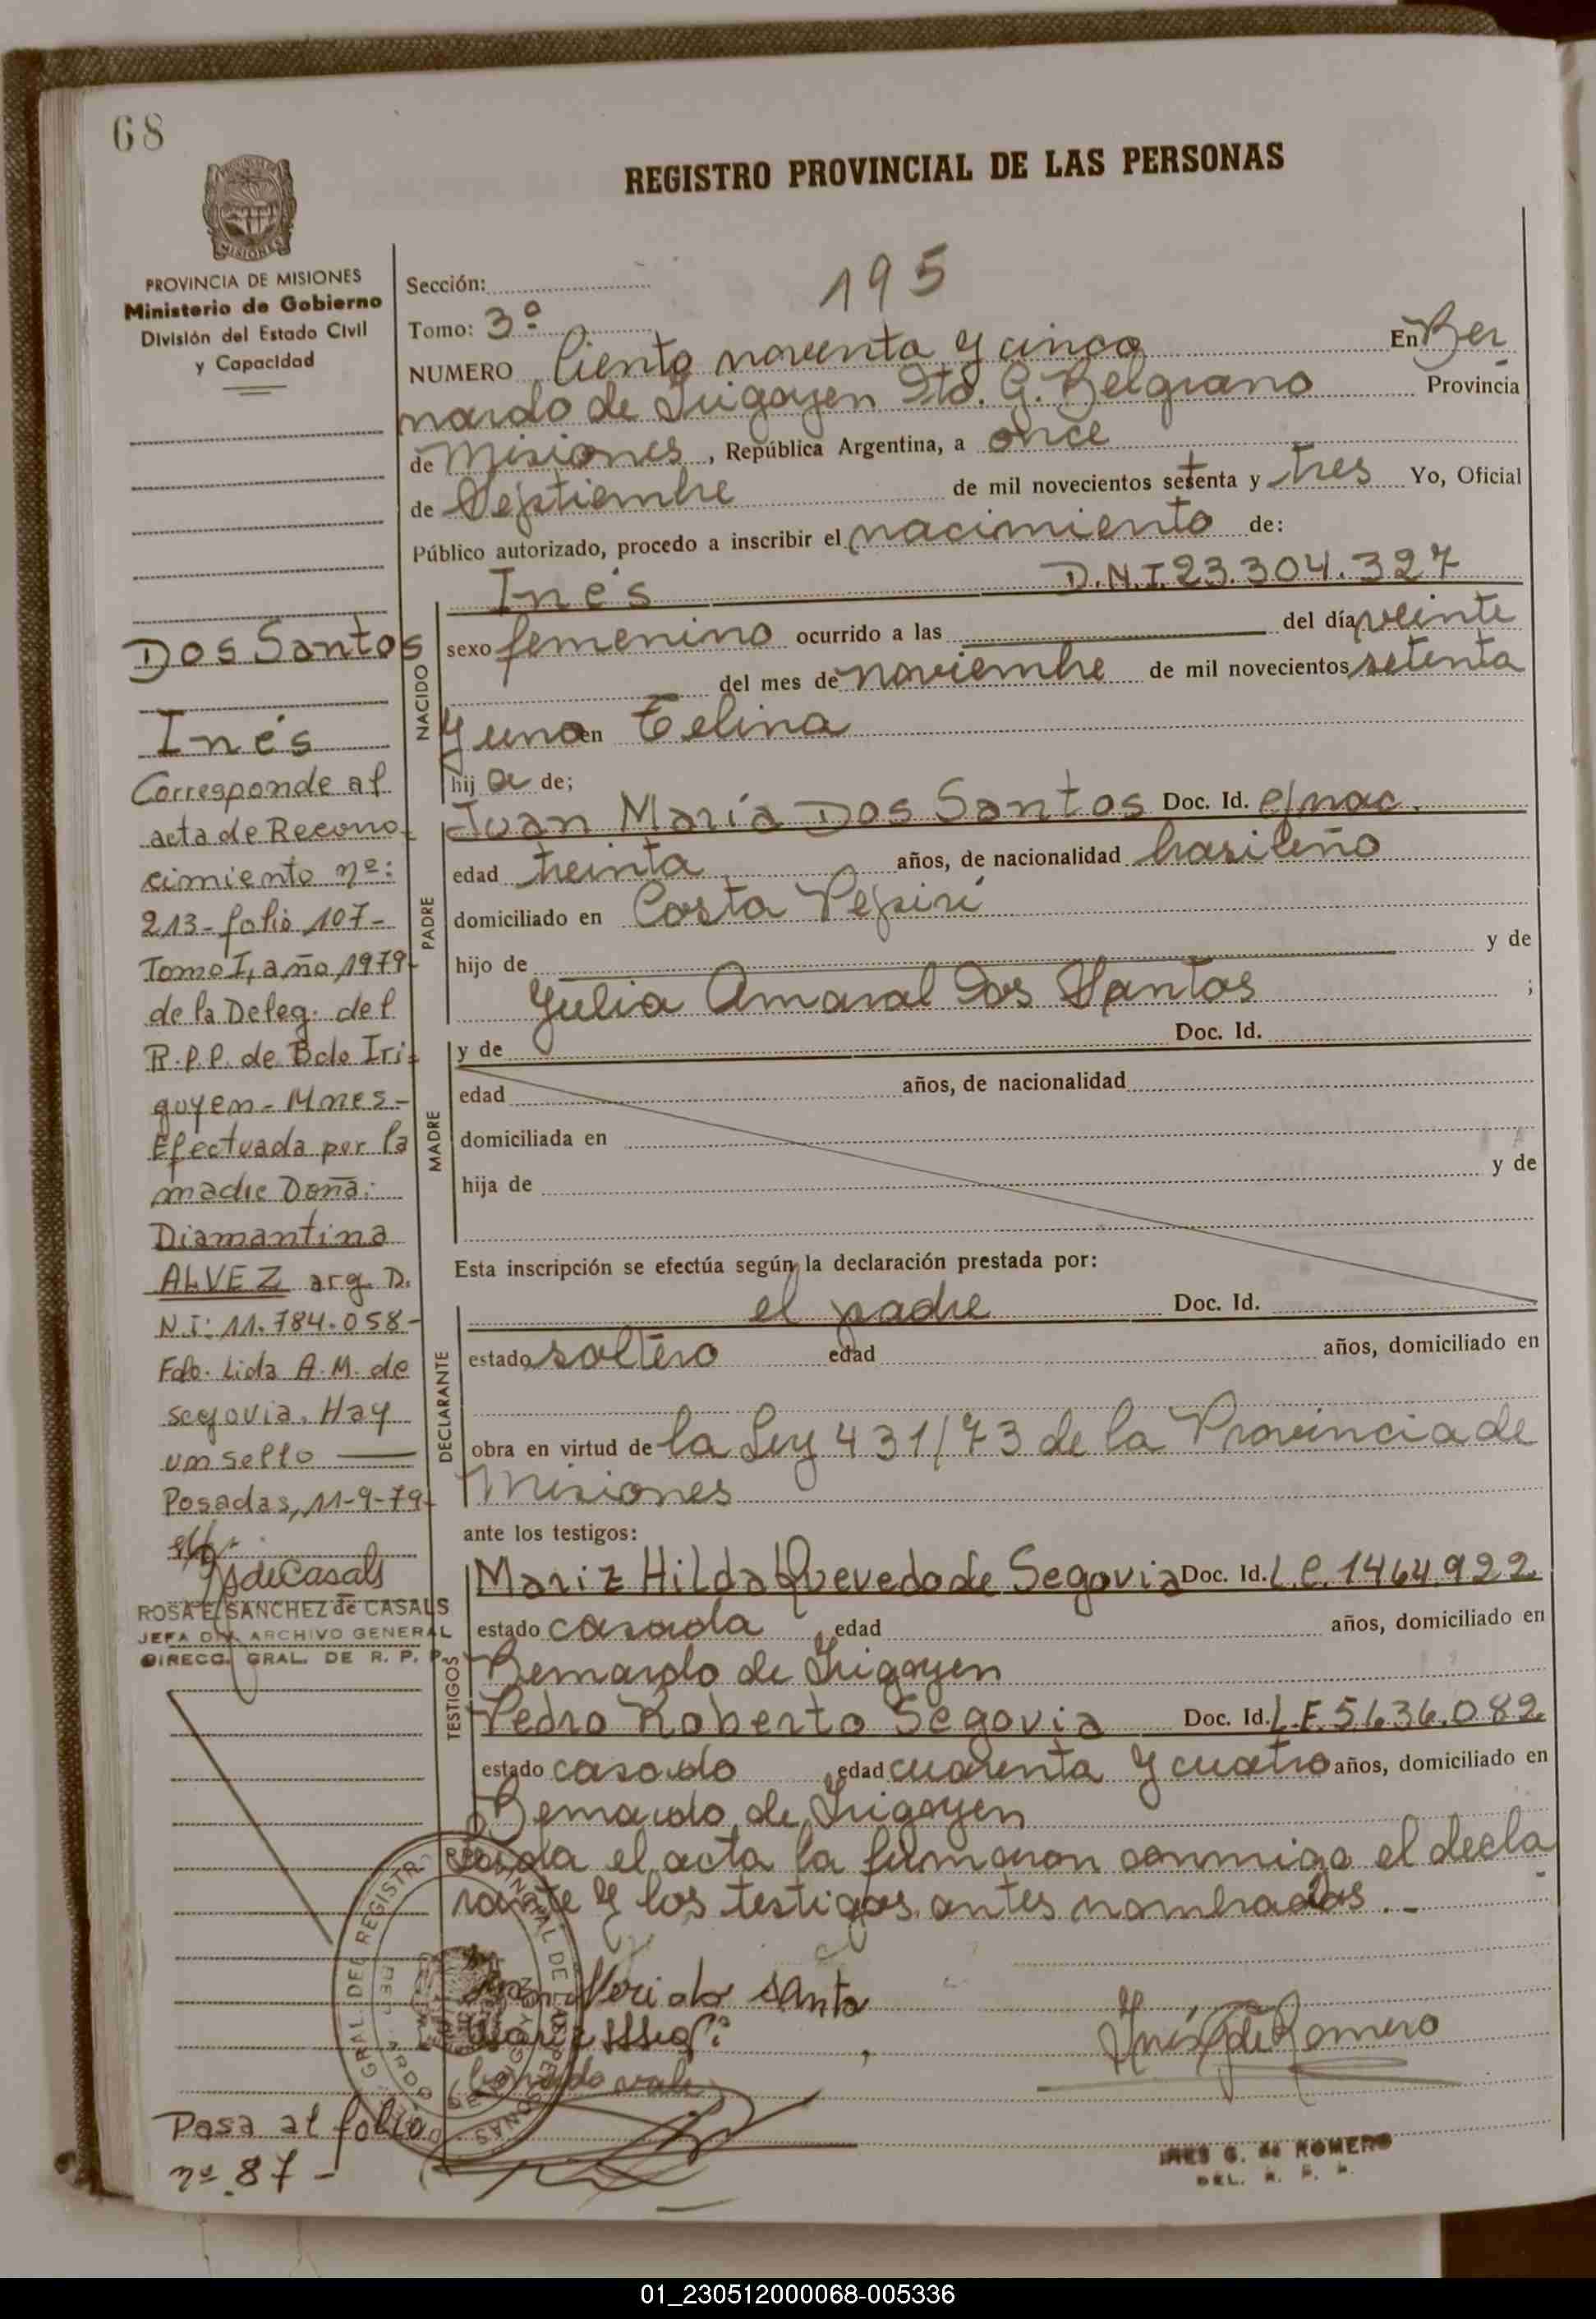 68
REGISTRO PROVINCIAL DE LAS PERSONAS
MISIONES
PROVINCIA DE MISIONES
Ministerio de Gobierno
División del Estado Civil
y Capacidad
195
Sección:
Tomo: 3º
NUMERO Ciento noventa y cinco En Ber
nardo de Irigoyen Dto. G. Belgrano Provincia
de Misiones, República Argentina, a once
de Septiembre de mil novecientos setenta y tres Yo, Oficial
Público autorizado, procedo a inscribir el nacimiento de:
Inés D.N.I. 23.304.327
NACIDO
sexo femenino ocurrido a las del día veinte
del mes de noviembre de mil novecientos setenta
y uno en Telina
hij a de;
PADRE
Juan María Dos Santos Doc. Id. c/nac.
edad treinta años, de nacionalidad brasileño
domiciliado en Costa Pepirí
hijo de y de
Julia Amaral Dos Santos ;
MADRE
y de Doc. Id.
edad años, de nacionalidad
domiciliada en
hija de y de
Esta inscripción se efectúa según la declaración prestada por:
DECLARANTE
el padre Doc. Id.
estado soltero edad años, domiciliado en
obra en virtud de la Ley 431/73 de la Provincia de
Misiones
ante los testigos:
TESTIGOS
Mariz Hilda Quevedo de Segovia Doc. Id. L.C. 1464.922
estado casada edad años, domiciliado en
Bernardo de Irigoyen
Pedro Roberto Segovia Doc. Id. L.E. 5.636.082
estado casado edad cuarenta y cuatro años, domiciliado en
Bernardo de Irigoyen
Leída el acta la firmaron conmigo el decla
rante y los testigos antes nombrados.-
santo
Inés G de Romero
borrado vale
INES G. de ROMERO
DEL. R. P. P.
Dos Santos
Inés
Corresponde al
acta de Recono-
cimiento nº:
213- folio 107-
Tomo I, año 1979-
de la Deleg. del
R.P.P. de Bdo Iri-
goyen- Mnes-
Efectuada por la
madre Doña:
Diamantina
ALVEZ arg. D.
N.I: 11.784.058-
Fdo. Lida A. M. de
Segovia. Hay
un sello —
Posadas, 11-9-79-
deCasals
ROSA E. SANCHEZ de CASALS
JEFA DIV. ARCHIVO GENERAL
DIRECC. GRAL. DE R. P. P.
Pasa al folio
nº 87 -
01_230512000068-005336